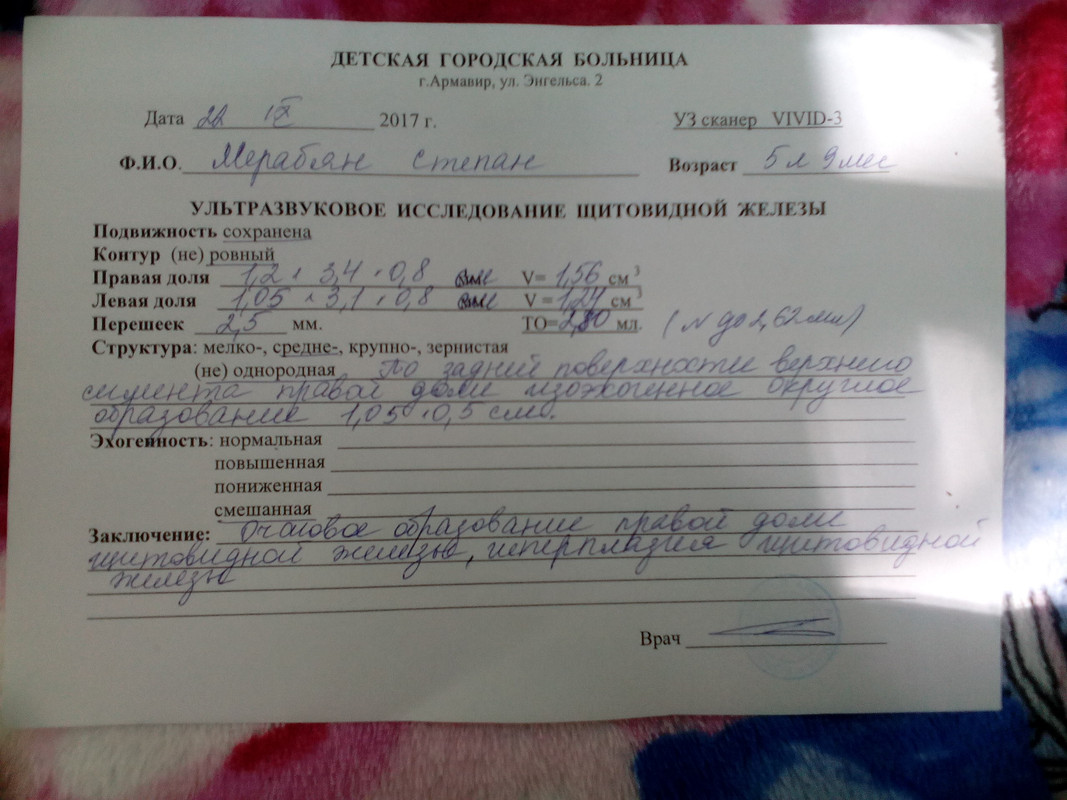 ДЕТСКАЯ ГОРОДСКАЯ БОЛЬНИЦА
г.Армавир, ул. Энгельса. 2
Дата 22 IX 2017 г. УЗ сканер VIVID-3
Ф.И.О. Мерабян Степан Возраст 5 л 9 мес
УЛЬТРАЗВУКОВОЕ ИССЛЕДОВАНИЕ ЩИТОВИДНОЙ ЖЕЛЕЗЫ
Подвижность сохранена
Контур (не) ровный
Правая доля 1,2 × 3,4 × 0,8 см V= 1,56 см³
Левая доля 1,05 × 3,1 × 0,8 см V = 1,24 см³
Перешеек 2,5 мм. ТО=2,80 мл. (N до 2,62 мл)
Структура: мелко-, средне-, крупно-, зернистая
(не) однородная По задней поверхности верхнего
сегмента правой доли изоэхогенное округлое
образование 1,05 × 0,5 см.
Эхогенность: нормальная
повышенная
пониженная
смешанная
Заключение: Очаговое образование правой доли
щитовидной железы, гиперплазия щитовидной
железы
Врач